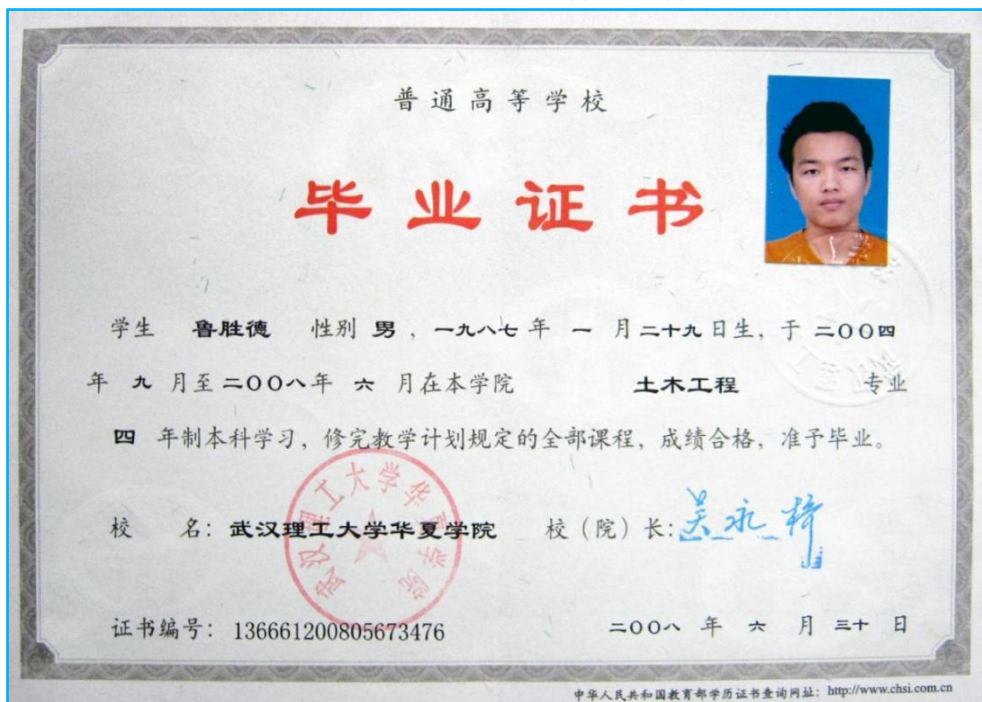 普通高等学校
毕业证书
学生 鲁胜德 性别 男，一九八七 年 一 月 二十九 日生，于 二〇〇四
年 九 月至 二〇〇八 年 六 月在本学院 土木工程 专业
四 年制本科学习，修完教学计划规定的全部课程，成绩合格，准予毕业。
校 名：武汉理工大学华夏学院 校（院）长：
武汉理工大学华夏学院
证书编号：136661200805673476 二〇〇八 年 六 月 三十 日
中华人民共和国教育部学历证书查询网址：http://www.chsi.com.cn